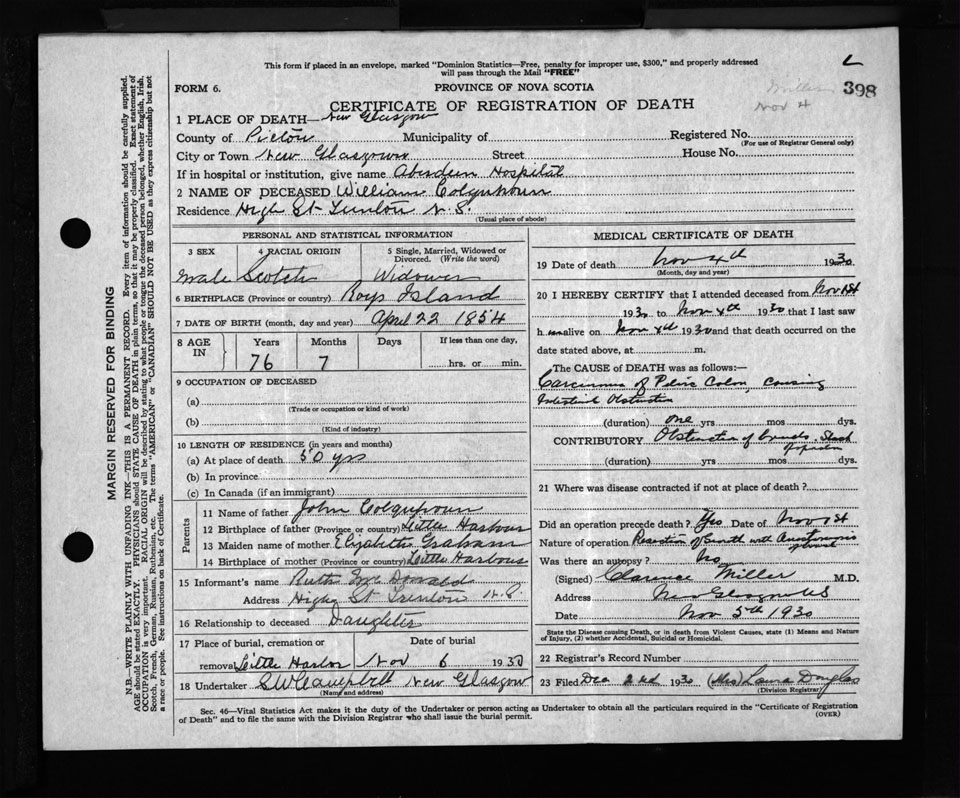 This form if placed in an envelope, marked "Dominion Statistics—Free, penalty for improper use, $300," and properly addressed
will pass through the Mail "FREE"
L
FORM 6.
PROVINCE OF NOVA SCOTIA
398
CERTIFICATE OF REGISTRATION OF DEATH
Nov 4
1 PLACE OF DEATH— New Glasgow
County of Pictou Municipality of Registered No.
(For use of Registrar General only)
City or Town New Glasgow Street House No.
If in hospital or institution, give name Aberdeen Hospital
2 NAME OF DECEASED William Colquhoun
Residence High St Trenton N.S.
(Usual place of abode)
PERSONAL AND STATISTICAL INFORMATION
3 SEX 4 RACIAL ORIGIN 5 Single, Married, Widowed or Divorced. (Write the word)
Male Scotch Widower
6 BIRTHPLACE (Province or country) Roys Island
7 DATE OF BIRTH (month, day and year) April 22 1854
8 AGE IN Years Months Days If less than one day,
76 7 hrs. or min.
9 OCCUPATION OF DECEASED
(a)
(Trade or occupation or kind of work)
(b)
(Kind of industry)
10 LENGTH OF RESIDENCE (in years and months)
(a) At place of death 50 yrs
(b) In province
(c) In Canada (if an immigrant)
Parents
11 Name of father John Colquhoun
12 Birthplace of father (Province or country) Little Harbour
13 Maiden name of mother Elizabeth Graham
14 Birthplace of mother (Province or country) Little Harbour
15 Informant's name Ruth
Address High St Trenton N.S.
16 Relationship to deceased Daughter
17 Place of burial, cremation or Date of burial
removal Little Harbor Nov 6 1930
18 Undertaker S W Campbell New Glasgow
(Name and address)
MEDICAL CERTIFICATE OF DEATH
19 Date of death Nov 4th 1930
(Month, day and year)
20 I HEREBY CERTIFY that I attended deceased from Nov 1st
1930 to Nov 4th 1930 that I last saw
h alive on Nov 4th 1930 and that death occurred on
date stated above, at m.
The CAUSE OF DEATH was as follows:—
Carcinoma of Pelvic Colon, causing
Intestinal Obstruction
(duration) one yrs mos dys.
CONTRIBUTORY Obstruction of bowels. Shock
(duration) yrs mos dys.
21 Where was disease contracted if not at place of death?
Did an operation precede death? Yes Date of Nov 1st
Nature of operation Resection of Growth with Anastomosis
of bowel
Was there an autopsy? No
(Signed) Clarence Miller M.D.
Address New Glasgow NS
Date Nov 5th 1930
State the Disease causing Death, or in death from Violent Causes, state (1) Means and Nature
of Injury, (2) whether Accidental, Suicidal or Homicidal.
22 Registrar's Record Number
23 Filed Dec 2nd 1930 (Mrs) Laura Douglas
(Division Registrar)
Sec. 46—Vital Statistics Act makes it the duty of the Undertaker or person acting as Undertaker to obtain all the particulars required in the "Certificate of Registration
of Death" and to file the same with the Division Registrar who shall issue the burial permit.
(OVER)
MARGIN RESERVED FOR BINDING
N.B.—WRITE PLAINLY WITH UNFADING INK—THIS IS A PERMANENT RECORD. Every item of information should be carefully supplied.
AGE should be stated EXACTLY. PHYSICIANS should STATE CAUSE OF DEATH in plain terms, so that it may be properly classified. Exact statement of
OCCUPATION is very important. RACIAL ORIGIN will be described by stating to what people or tongue the deceased person belonged, whether English, Irish,
Scotch, French, German, Russian, Ruthenian, etc. The terms "AMERICAN" or "CANADIAN" SHOULD NOT BE USED as they express citizenship but not
a race or people. See instructions on back of Certificate.